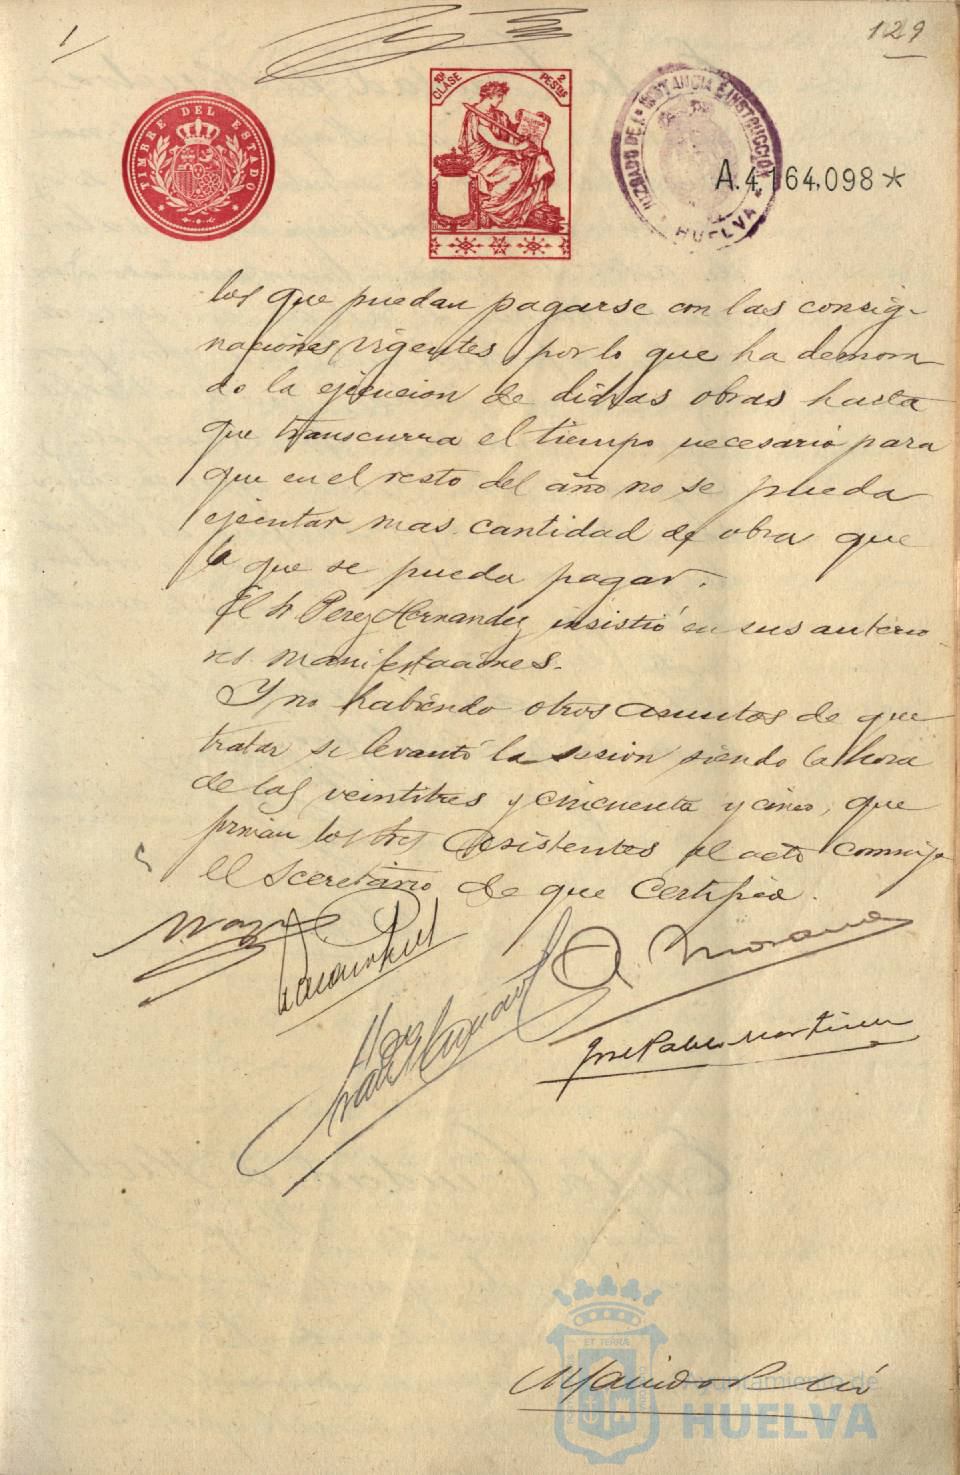 1
129
TIMBRE DEL ESTADO
10ª CLASE
2 PESETAS
JUZGADO DE 1ª INSTANCIA E INSTRUCCIÓN
HUELVA
A.4,164,098*
los que puedan pagarse con las consig-
naciones vigentes, por lo que ha demora
do la ejecucion de dichas obras hasta
que transcurra el tiempo necesario para
que en el resto del año no se pueda
ejecutar mas cantidad de obra que
la que se pueda pagar.
El Sr. Perez Hernandez insistió en sus anterio
res manifestaciones.-
Y no habiendo otros asuntos de que
tratar se levantó la sesion siendo la hora
de las veintitres y cincuenta y cinco, que
firman los Sres Asistentes al acto conmigo
el Secretario de que certifico.
Moreno
José Pablo Martinez
ET TERRA
Ayuntamiento de
HUELVA